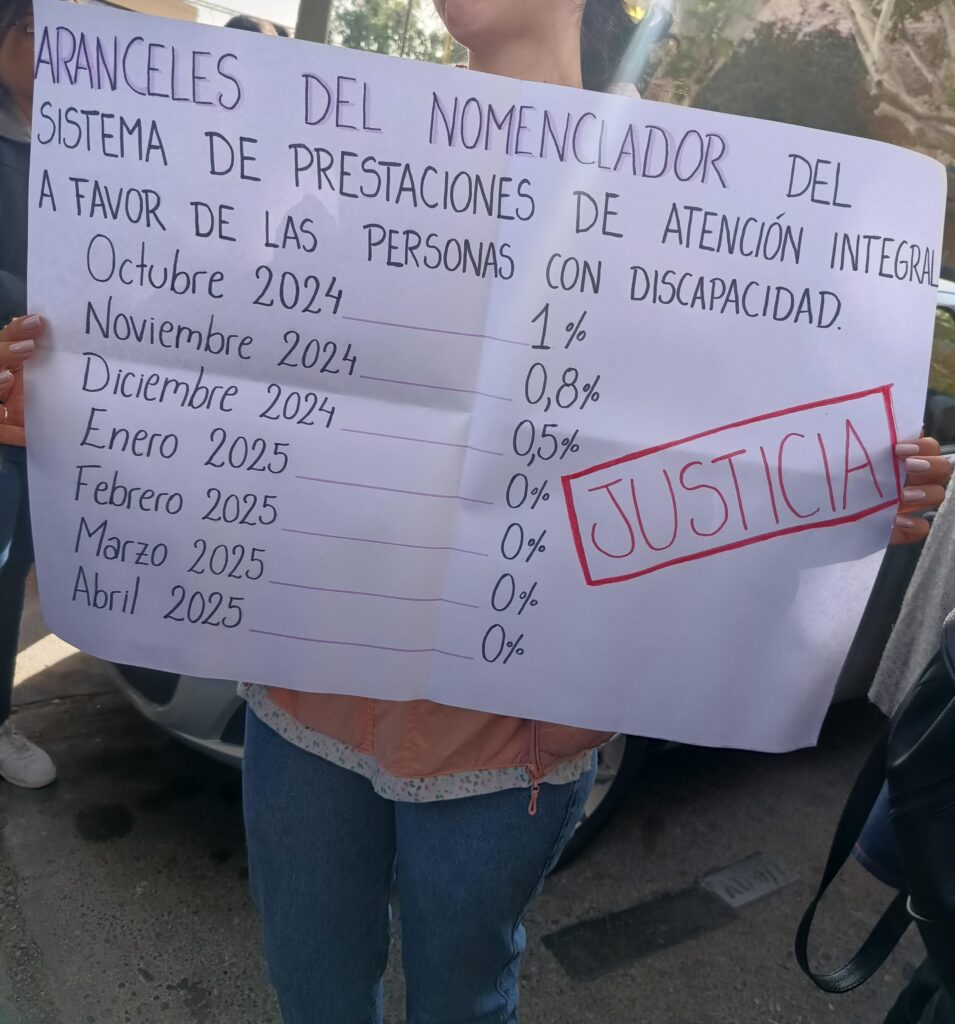 ARANCELES DEL NOMENCLADOR DEL
SISTEMA DE PRESTACIONES DE ATENCIÓN INTEGRAL
A FAVOR DE LAS PERSONAS CON DISCAPACIDAD.
Octubre 2024 1%
Noviembre 2024 0,8%
Diciembre 2024 0,5%
Enero 2025 0%
Febrero 2025 0%
Marzo 2025 0%
Abril 2025 0%
JUSTICIA